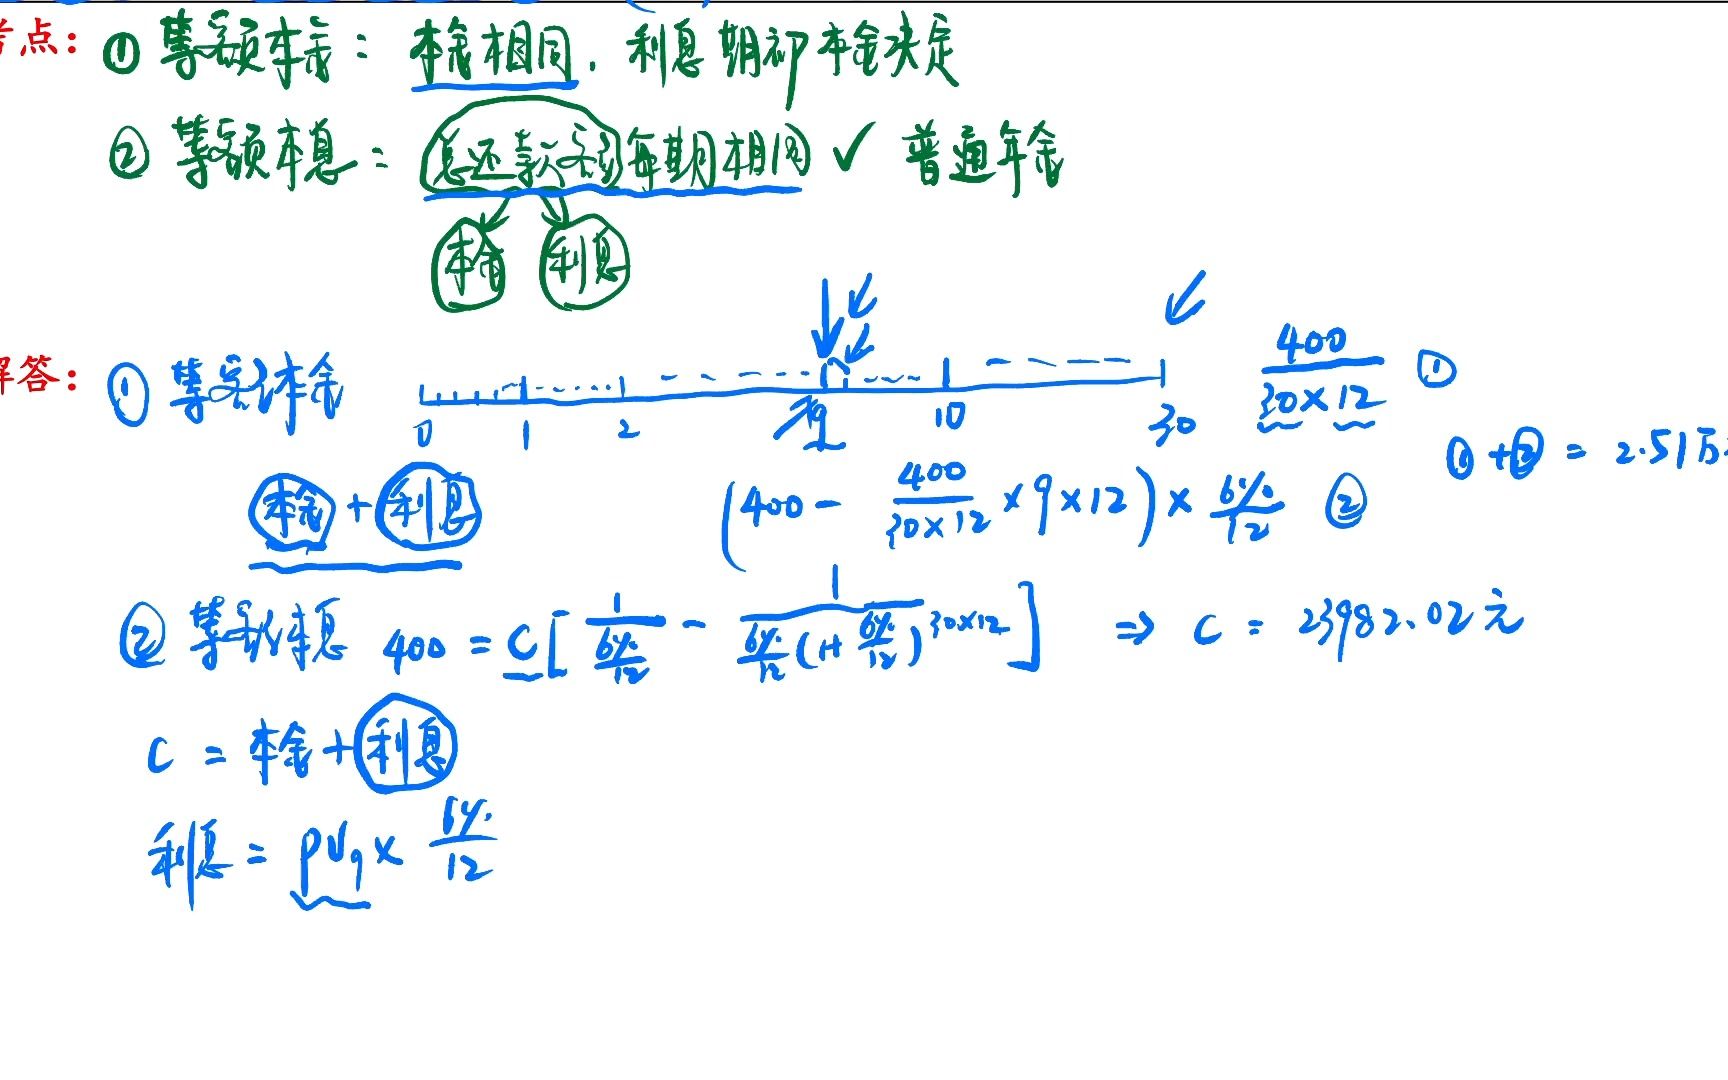 考点: ① 等额本金: 本金相同, 利息期初本金决定
② 等额本息: 总还款额每期相同 ✓ 普通年金
本金 利息
解答: ① 等额本金 0 1 2 9 10 30 400/(30×12) ①
①+② = 2.51万
本金 + 利息 (400 - 400/(30×12) × 9 × 12) × 6%/12 ②
② 等额本息 400 = C[1/(6%/12) - 1/(6%/12(1+6%/12)^(30×12))] ⇒ C = 23982.02元
C = 本金 + 利息
利息 = PV₉ × 6%/12